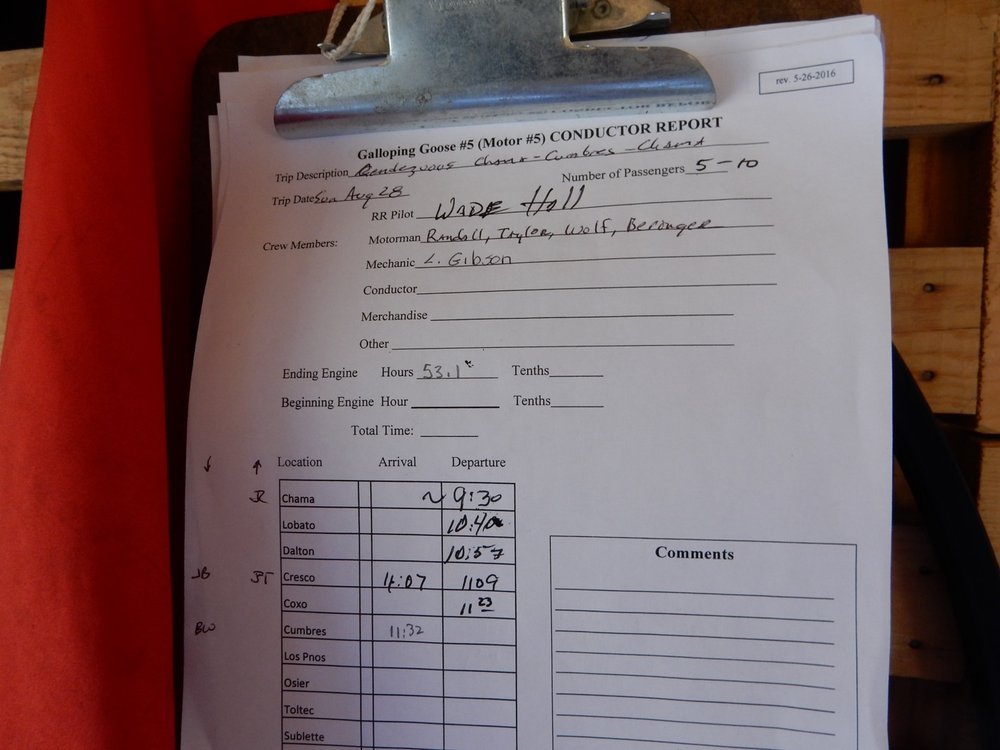 rev. 5-26-2016
Galloping Goose #5 (Motor #5) CONDUCTOR REPORT
Trip Description Rendezvous Chama - Cumbres - Chama
Number of Passengers 5-10
Trip Date Sun Aug 28
RR Pilot WADE Hall
Crew Members: Motorman Randall, Taylor, Wolf, Beronger
Mechanic L. Gibson
Conductor
Merchandise
Other
Ending Engine Hours 53.1 Tenths
Beginning Engine Hour Tenths
Total Time:
↓ ↑ Location Arrival Departure
JR Chama ~ 9:30
Lobato 10:40
Dalton 10:57
JB JT Cresco 4:07 1109
Coxo 11 23
BW Cumbres 11:32
Los Pnos
Osier
Toltec
Sublette
Comments